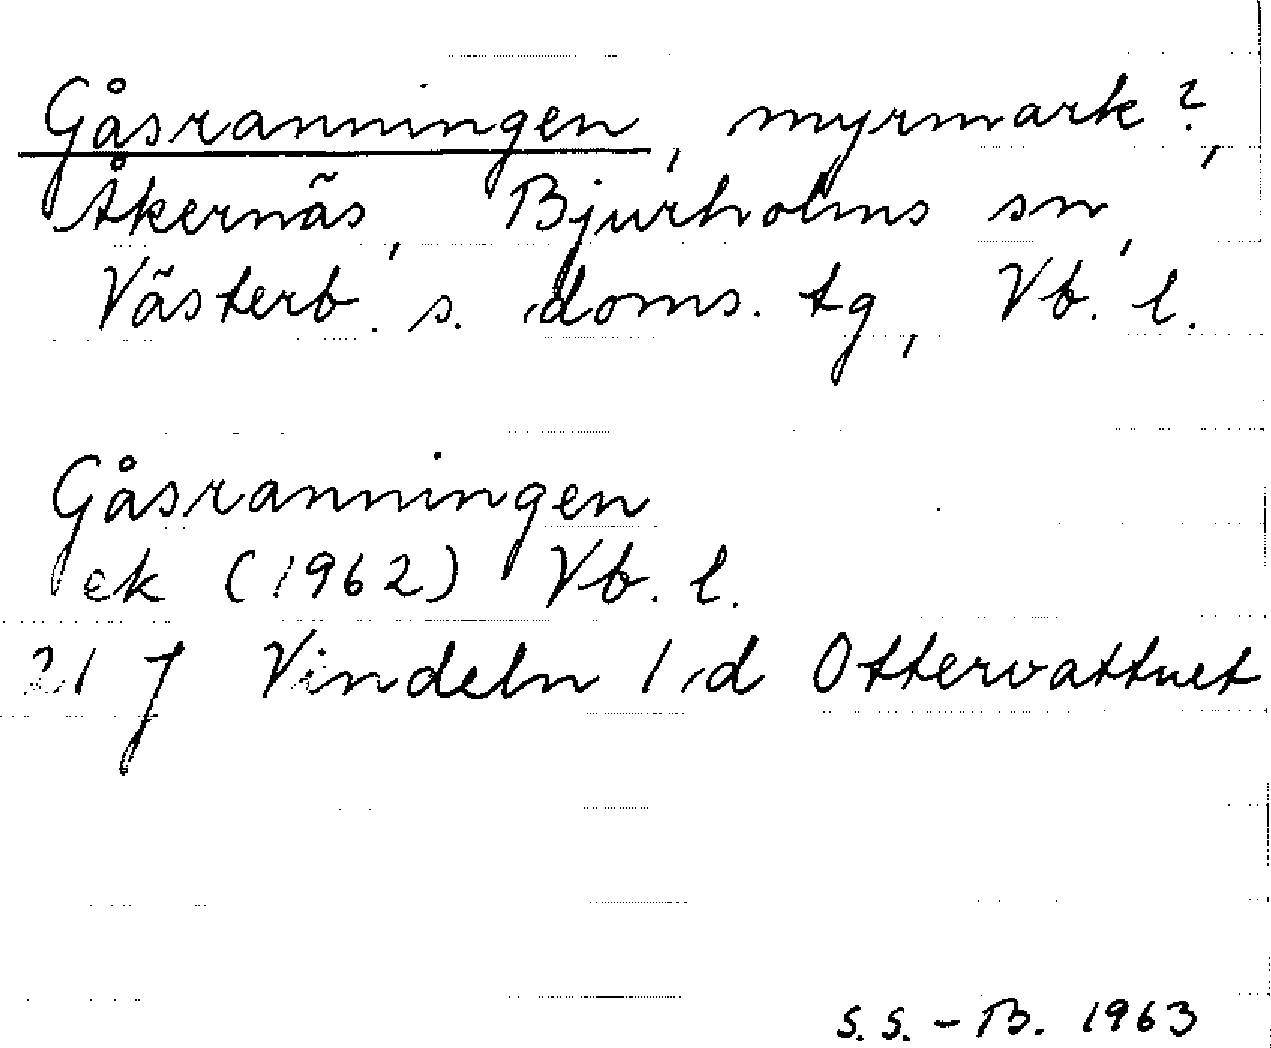 Gåsranningen, myrmark?,
Åkernäs, Bjurholms sn,
Västerb. s. doms. tg, Vb. l.
Gåsranningen
ek (1962) Vb. l.
21 J Vindeln 1 d Ottervattnet
S.S.-B. 1963